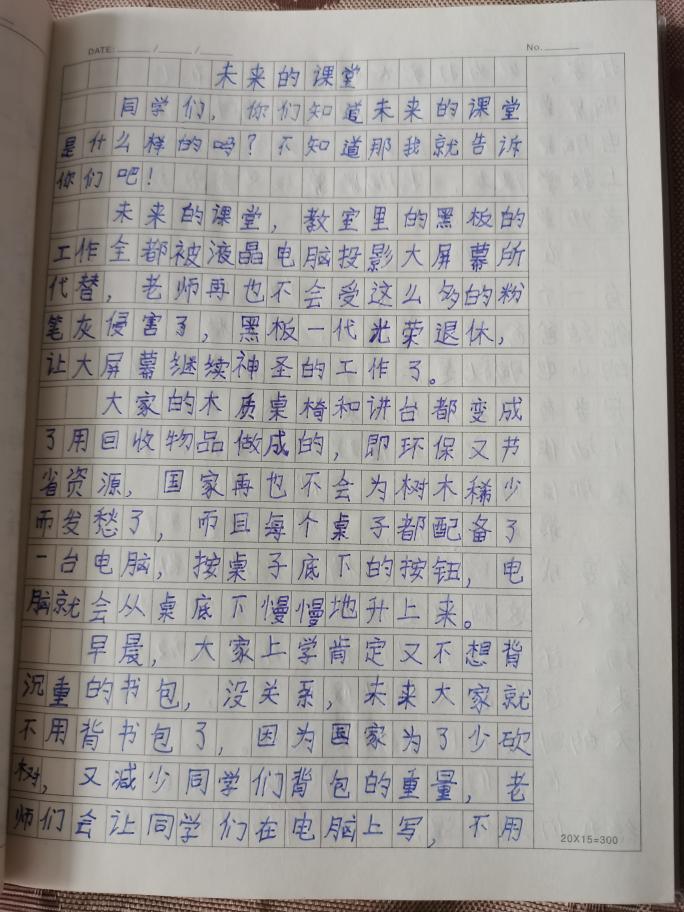 DATE: ____ / ____ / ____
No. ____
未来的课堂
同学们，你们知道未来的课堂
是什么样的吗？不知道那我就告诉
你们吧！
未来的课堂，教室里的黑板的
工作全都被液晶电脑投影大屏幕所
代替，老师再也不会受这么多的粉
笔灰侵害了，黑板一代光荣退休，
让大屏幕继续神圣的工作了。
大家的木质桌椅和讲台都变成
了用回收物品做成的，即环保又节
省资源，国家再也不会为树木稀少
而发愁了，而且每个桌子都配备了
一台电脑，按桌子底下的按钮，电
脑就会从桌底下慢慢地升上来。
早晨，大家上学肯定又不想背
沉重的书包，没关系，未来大家就
不用背书包了，因为国家为了少砍
树，又减少同学们背包的重量，老
师们会让同学们在电脑上写，不用
20X15=300